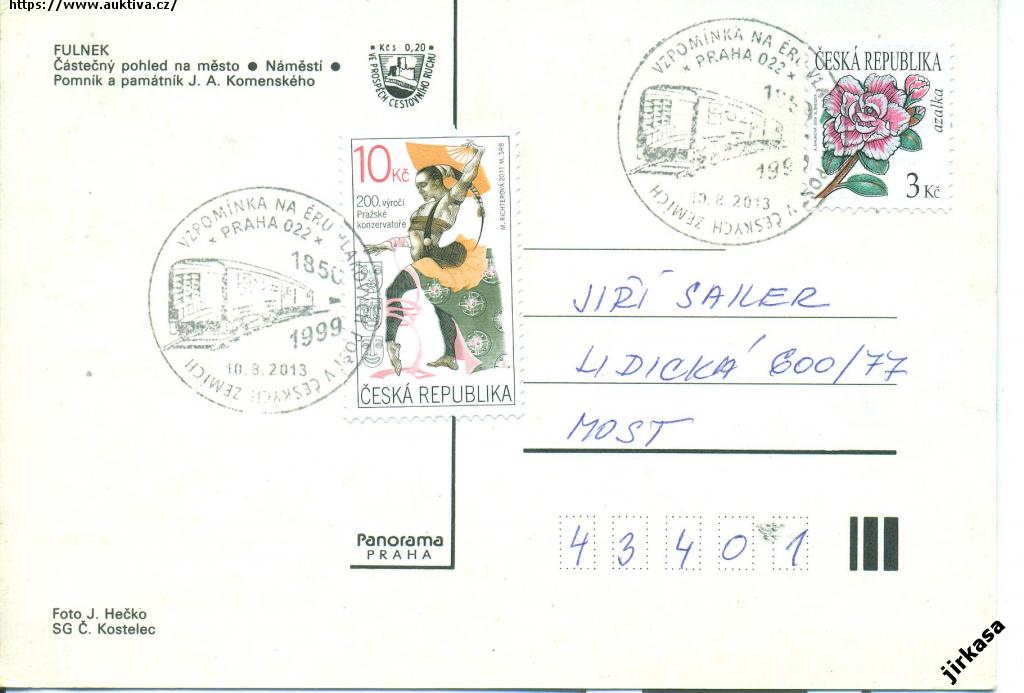 https://www.auktiva.cz/
FULNEK
Částečný pohled na město ● Náměstí ●
Pomník a památník J. A. Komenského
Kčs 0,20
VE PROSPĚCH CESTOVNÍHO RUCHU
VZPOMÍNKA NA ÉRU VLAKOVÝCH POŠT V ČESKÝCH ZEMÍCH
* PRAHA 022 *
1850
1999
10.8.2013
10 Kč
200. výročí
Pražské
konzervatoře
M. RICHTEROVÁ 2011 M. SRB
ČESKÁ REPUBLIKA
VZPOMÍNKA NA ÉRU POŠT V ČESKÝCH ZEMÍCH
* PRAHA 022 *
1850
1999
10.8.2013
ČESKÁ REPUBLIKA
azalka
3 Kč
JIŘÍ SAILER
LIDICKÁ 600/77
MOST
43401
Panorama
PRAHA
Foto J. Hečko
SG Č. Kostelec
jirkasa